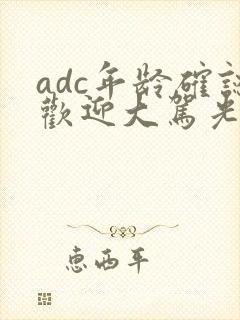 adc年龄確認
歡迎大駕光
惠西平